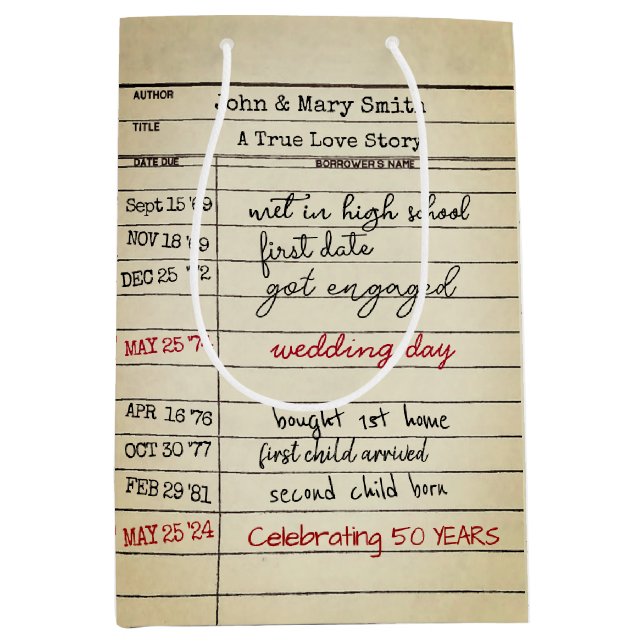 AUTHOR John & Mary Smith
TITLE A True Love Story
DATE DUE BORROWER'S NAME
Sept 15 '69 met in high school
NOV 18 '69 first date
DEC 25 '72 got engaged
MAY 25 wedding day
APR 16 '76 bought 1st home
OCT 30 '77 first child arrived
FEB 29 '81 second child born
MAY 25 '24 Celebrating 50 YEARS